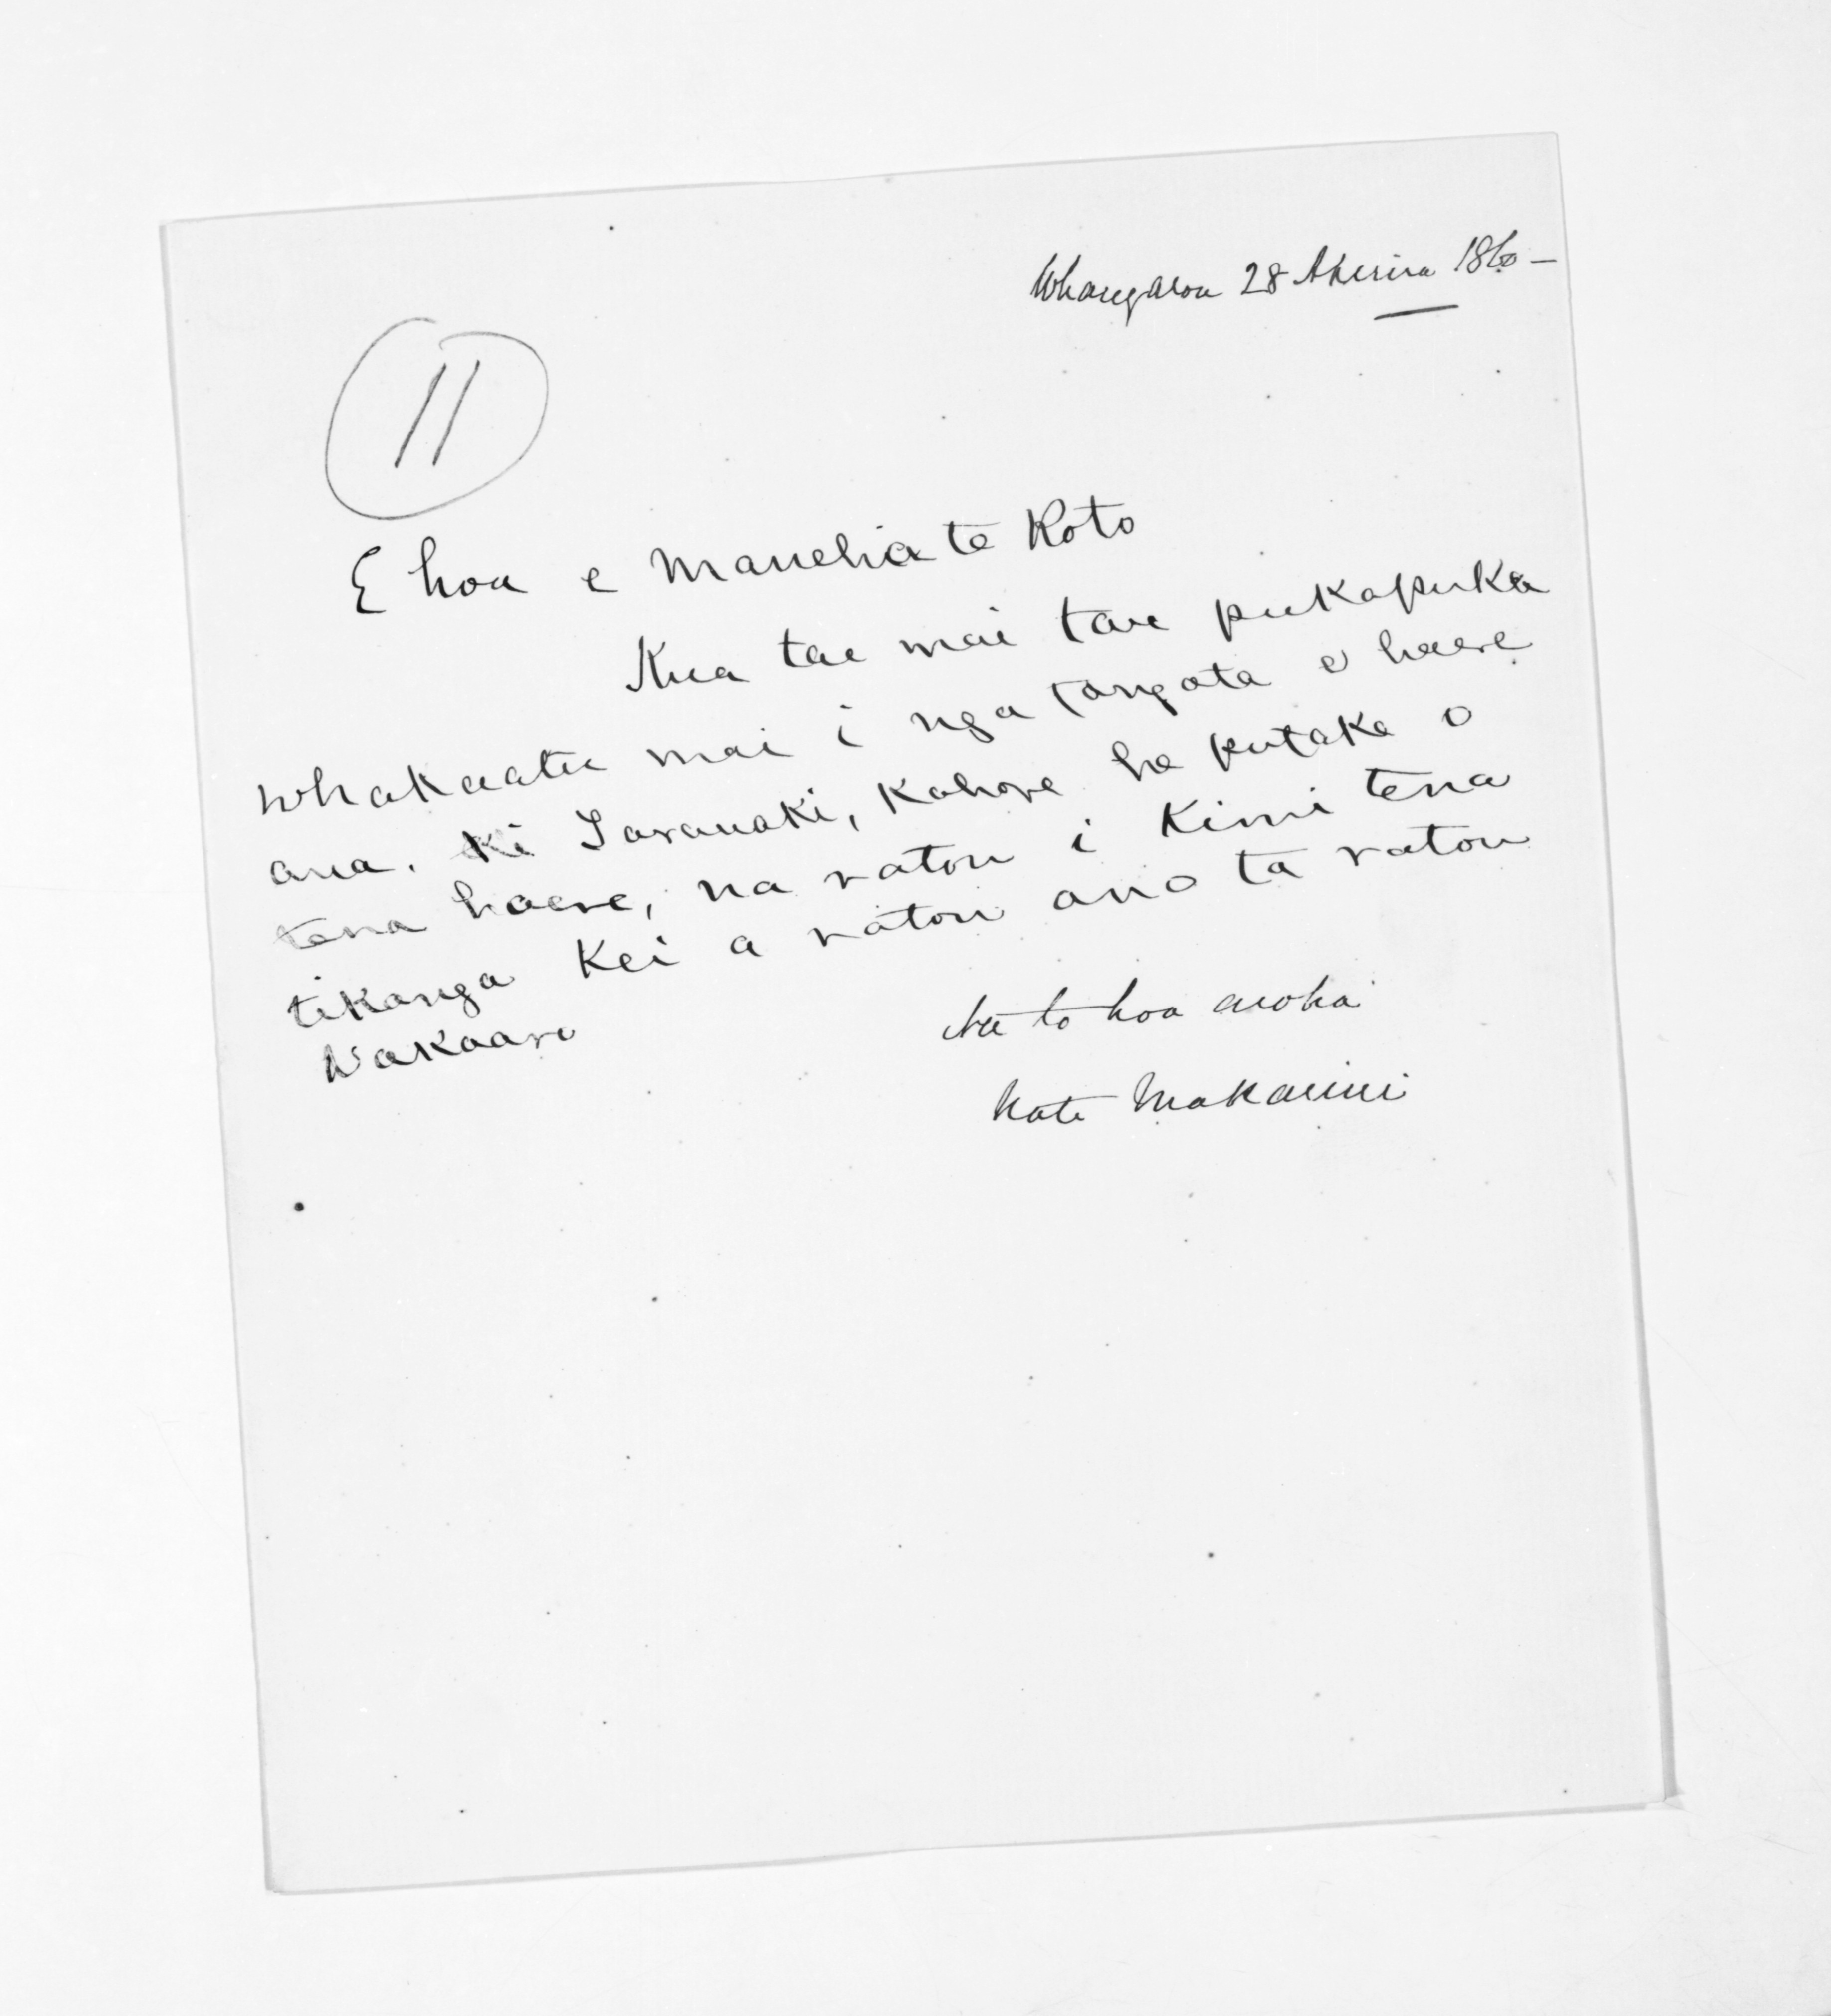 Whangaroa 28 Akerira 1860 —
11
E hoa e Manehia te Roto
Kua tae mai tau pukapuka
whakaatu mai i nga tangata e haere
ana. Ki Taranaki, Kahore he putake o
tena haere, na ratou i Kimi tena
tikanga Kei a ratou ano ta ratou
Wakaaro
Na to hoa aroha
Na te Makarini